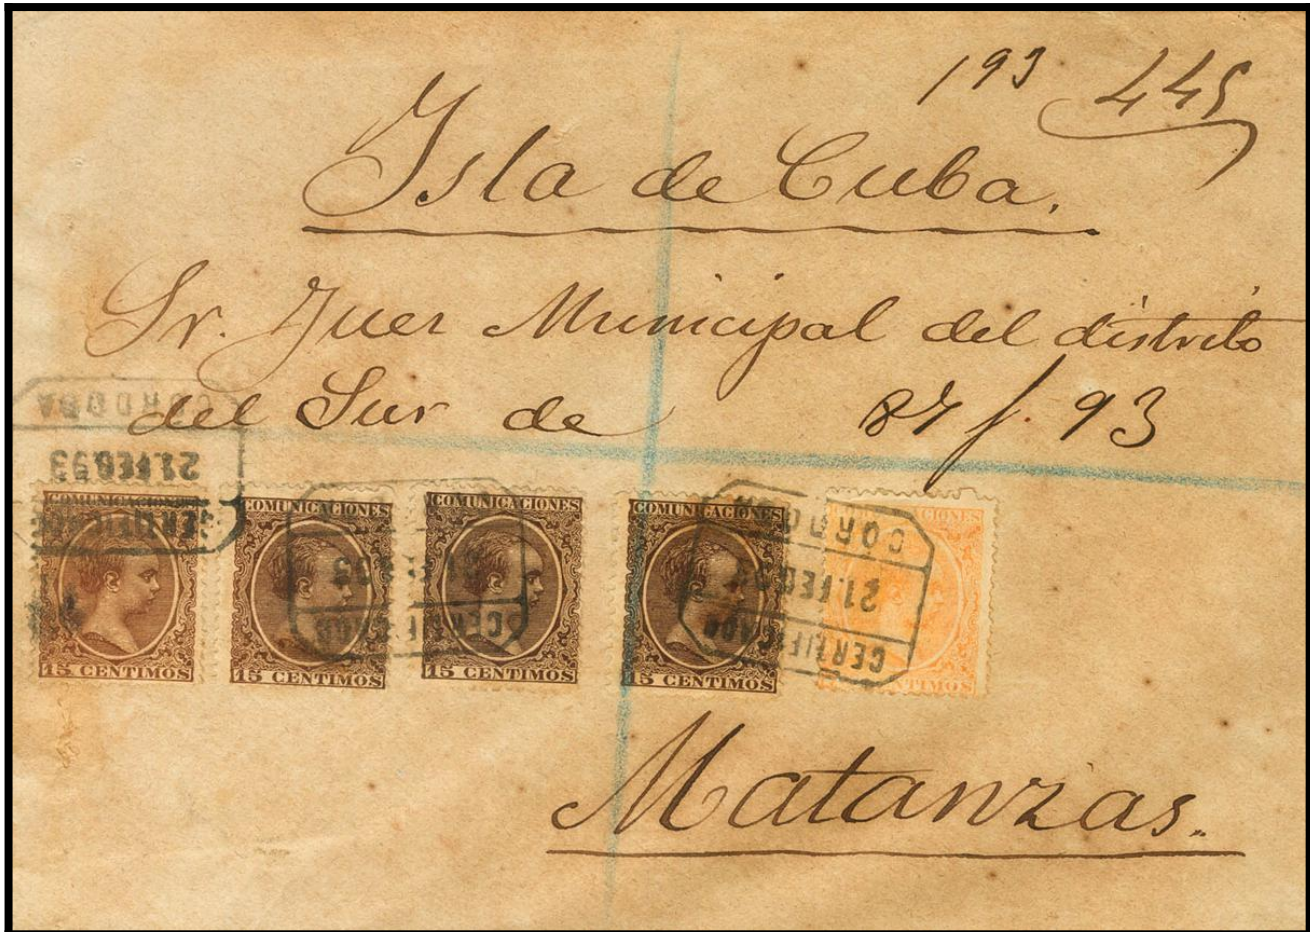 193 445
Isla de Cuba.
Sr. Juez Municipal del distrito
del Sur de 87 f. 93
CORDOBA
21.FEB.93
CERTIFICADO
COMUNICACIONES
15 CENTIMOS
COMUNICACIONES
15 CENTIMOS
COMUNICACIONES
15 CENTIMOS
COMUNICACIONES
15 CENTIMOS
CERTIFICADO
21.FEB.93
CORDOBA
CENTIMOS
Matanzas.